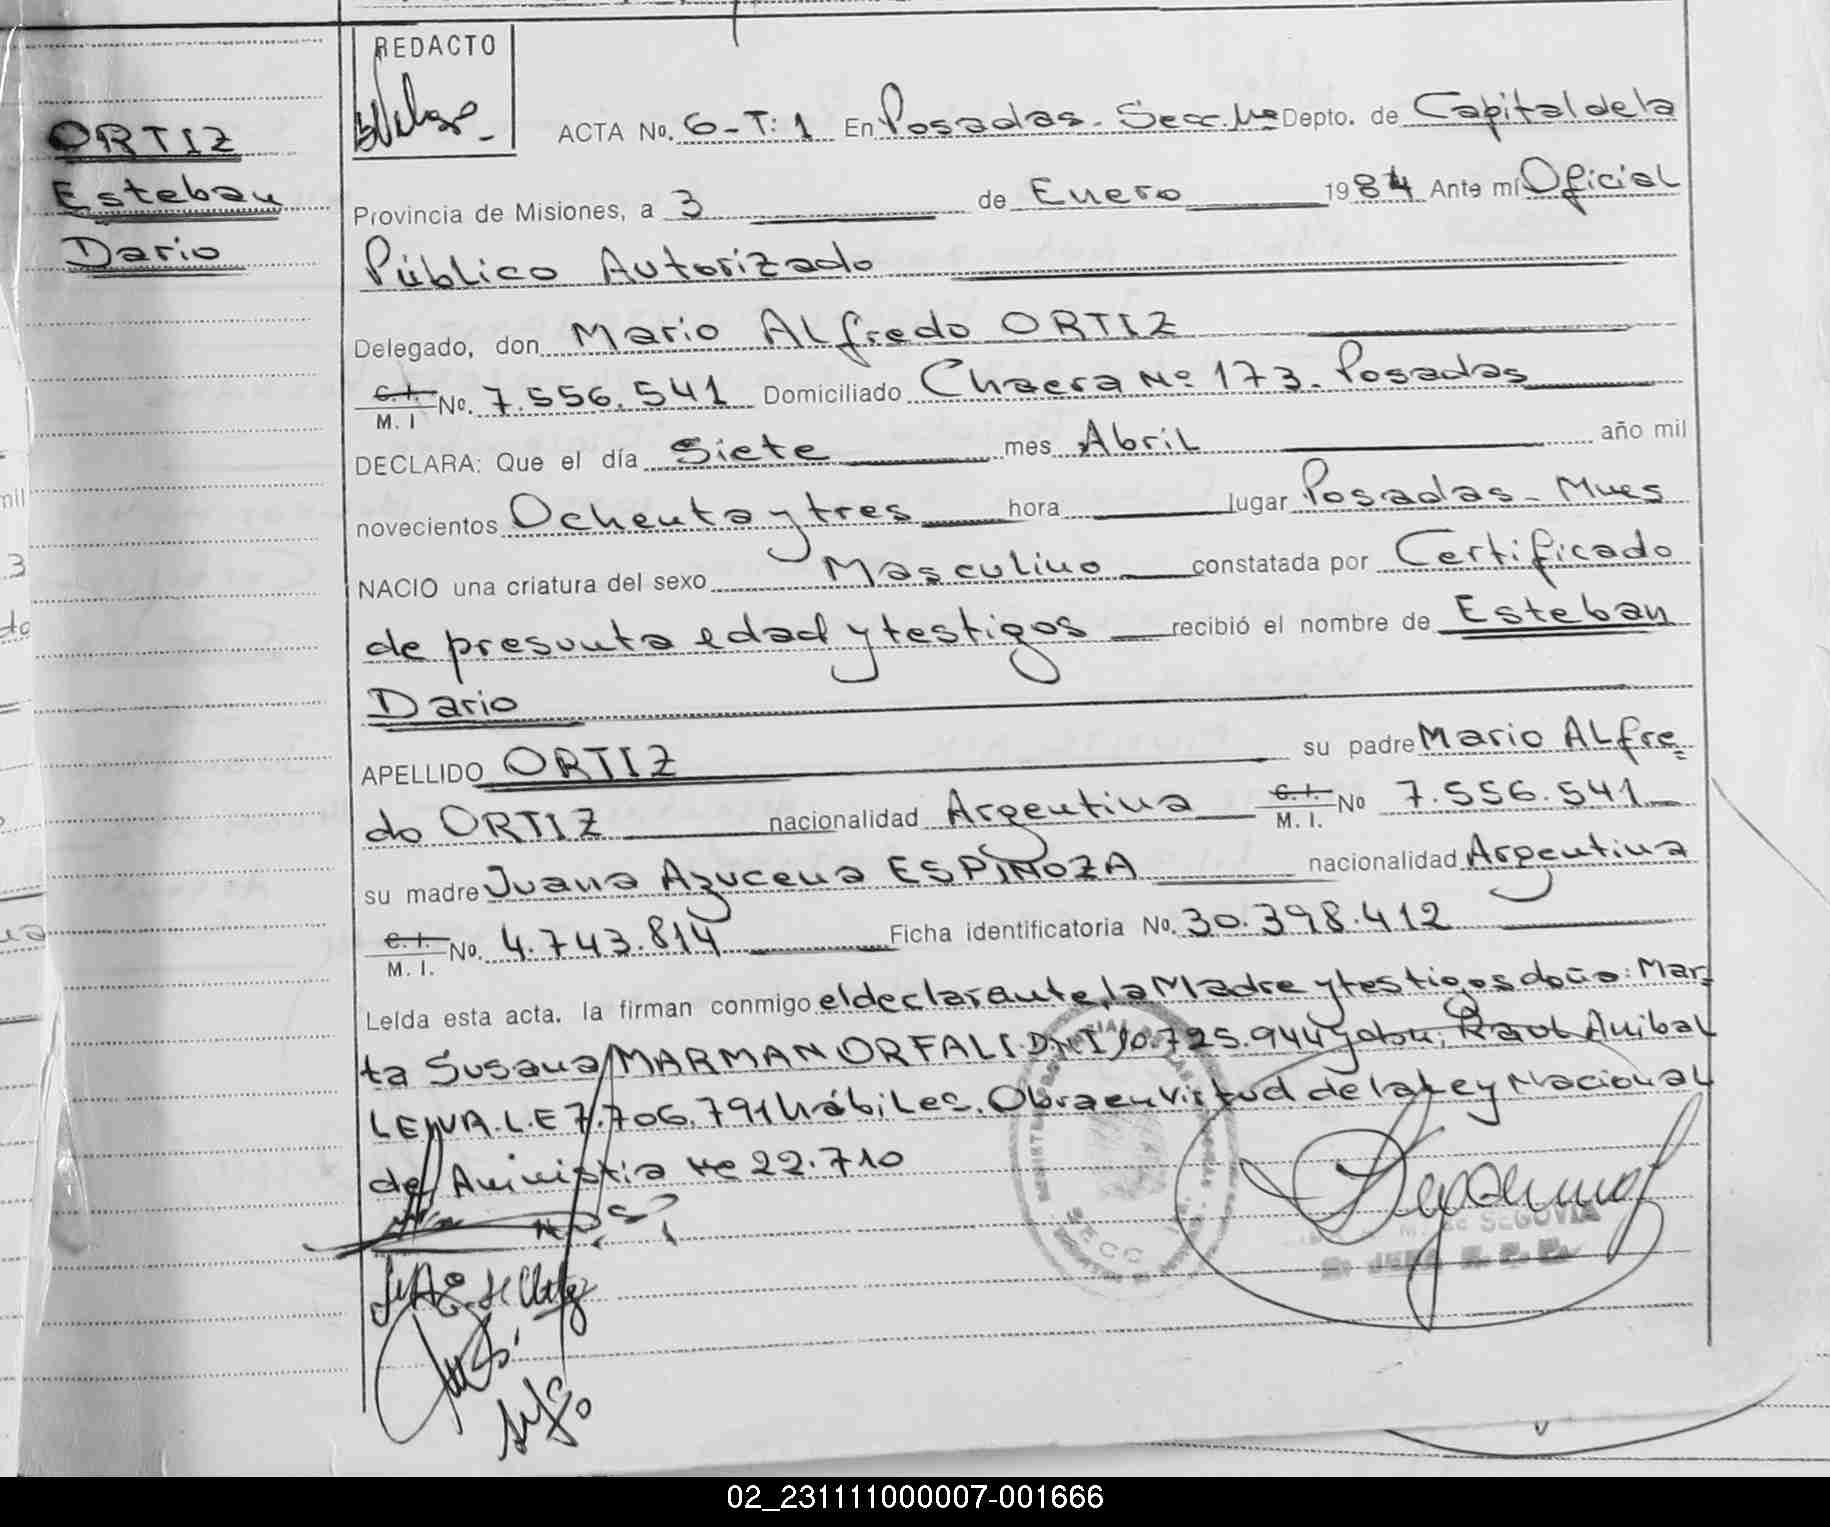 REDACTO
ORTIZ
Esteban
Dario
ACTA No. 6-T:1 En Posadas. Secc. Depto. de Capital de la
Provincia de Misiones, a 3 de Enero 1984 Ante mí Oficial
Público Autorizado
Delegado, don Mario Alfredo ORTIZ
C.I. M. I No. 7.556.541 Domiciliado Chacra Nº 173. Posadas
DECLARA: Que el día Siete mes Abril año mil
novecientos Ochenta y tres hora lugar Posadas - Mnes
NACIO una criatura del sexo Masculino constatada por Certificado
de presunta edad y testigos recibió el nombre de Esteban
Dario
APELLIDO ORTIZ su padre Mario Alfre=
do ORTIZ nacionalidad Argentina C.I. M. I. No 7.556.541
su madre Juana Azucena ESPINOZA nacionalidad Argentina
C.I. M. I. No. 4.743.814 Ficha identificatoria No. 30.398.412
Leída esta acta. la firman conmigo el declarante, la Madre y testigos doña: Mar=
ta Susana MARMAN ORFALI D.N.I 10.725.944 y don: Raul Anibal
LEIVA. L.E 7.706.791 hábiles. Obra en virtud de la Ley Nacional
de Aministia Nº 22.710
SECC.
M. de SEGOVIA
02_231111000007-001666